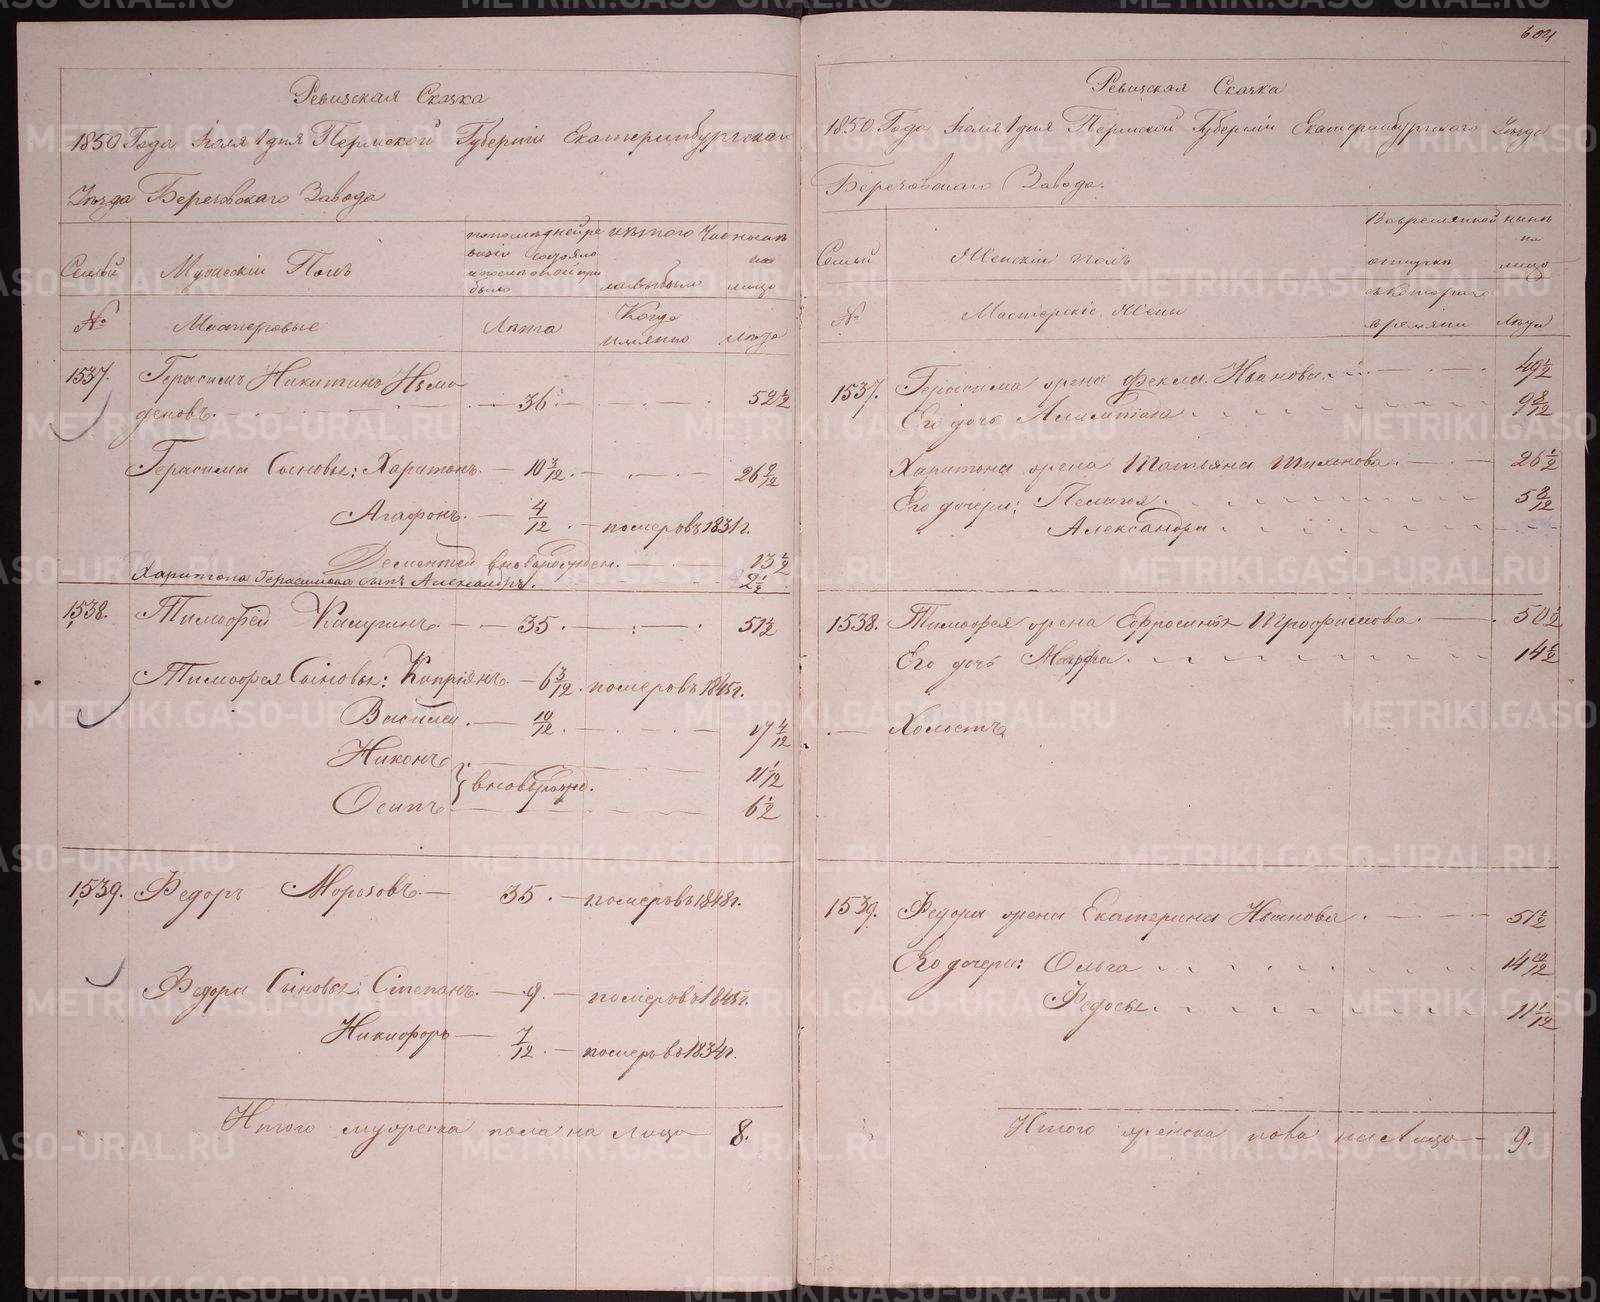 Ревизская Сказка
1850 Года Іюля 1 дня Пермской Губерніи Екатеринбургскаго
Уѣзда Березовскаго Завода
Семьи
Мужескій Полъ
по последней ре
визіи состояло
было
изъ того
Ныне на
лицо
№
Мастеровые
Лѣта
Когда
имянно
Лѣта
1537.
Герасимъ Никитинъ
36
52 1/2
Герасима Сыновья: Харитонъ 10 3/12 26 9/12
Агафонъ 4/12 померъ въ 1831 г.
Дементей вновьрожден. 13 1/2
Харитона Герасимова сынъ Александръ. 2 1/2
1538. Тимофей Калугинъ 35 51 1/2
Тимофея Сыновья: Кипріянъ 6 3/12 померъ въ 1845 г.
Василей 10/12 17 4/12
Никонъ 11 1/12
вновьрожд.
Осипъ 6 1/2
1539. Федоръ Морозовъ 35 померъ въ 1848 г.
Федора Сыновья: Степанъ 9 померъ въ 1845 г.
Никифоръ 7/12 померъ въ 1834 г.
Итого мужеска пола на лицо 8.
604
Ревизская Сказка
1850 Года Іюля 1 дня Пермской Губерніи Екатеринбургскаго Уѣзда
Березовскаго Завода.
Семьи
Женскій полъ
Во временной
отлучкѣ
ныне
на
лицо
№
Мастерскіе Жены
съ котораго
времяни
Лѣта
1537. Герасима жена Фекла Иванова 49 1/2
Его дочь 9 8/12
Харитона жена Татьяна 26 1/2
Его дочери: Пелагея 5 8/12
Александра
1538. Тимофея жена Ефросинья Трофимова 50 1/2
Его дочь Марфа 14 1/2
Холостъ
1539. Федора жена Екатерина Иванова 51 1/2
Его дочери: Ольга
Федосья 11 1/12
Итого женска пола на Лицо 9.
METRIKI.GASO-URAL.RU